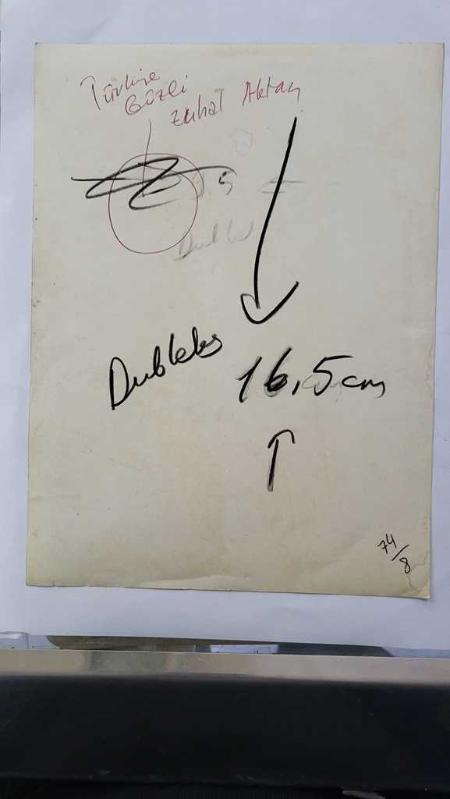 Türkiye
Güzeli
Zuhal Aktan
5
Dubleks
16,5 cm
74/8